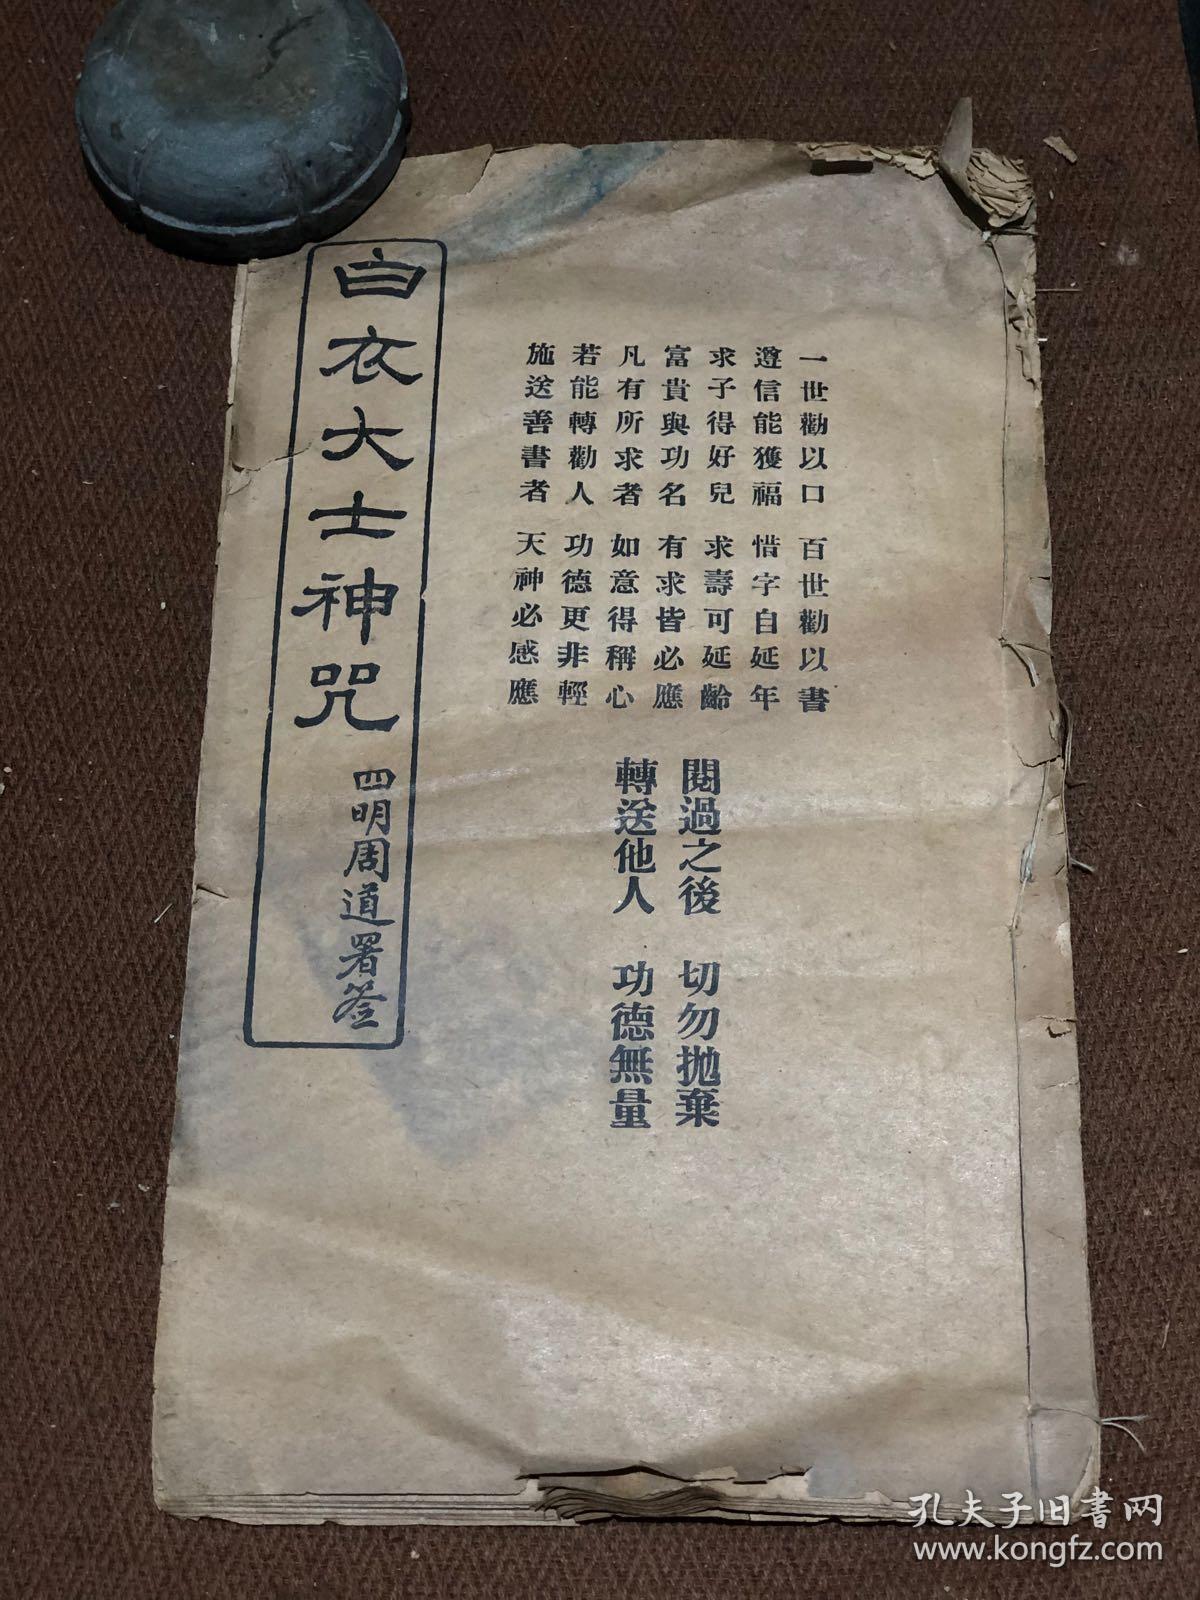 一世勸以口 百世勸以書
遵信能獲福 惜字自延年
求子得好兒 求壽可延齡
富貴與功名 有求皆必應
凡有所求者 如意得稱心
若能轉勸人 功德更非輕
施送善書者 天神必感應
閱過之後 切勿拋棄
轉送他人 功德無量
白衣大士神咒
四明周道署签
孔夫子旧书网
www.kongfz.com